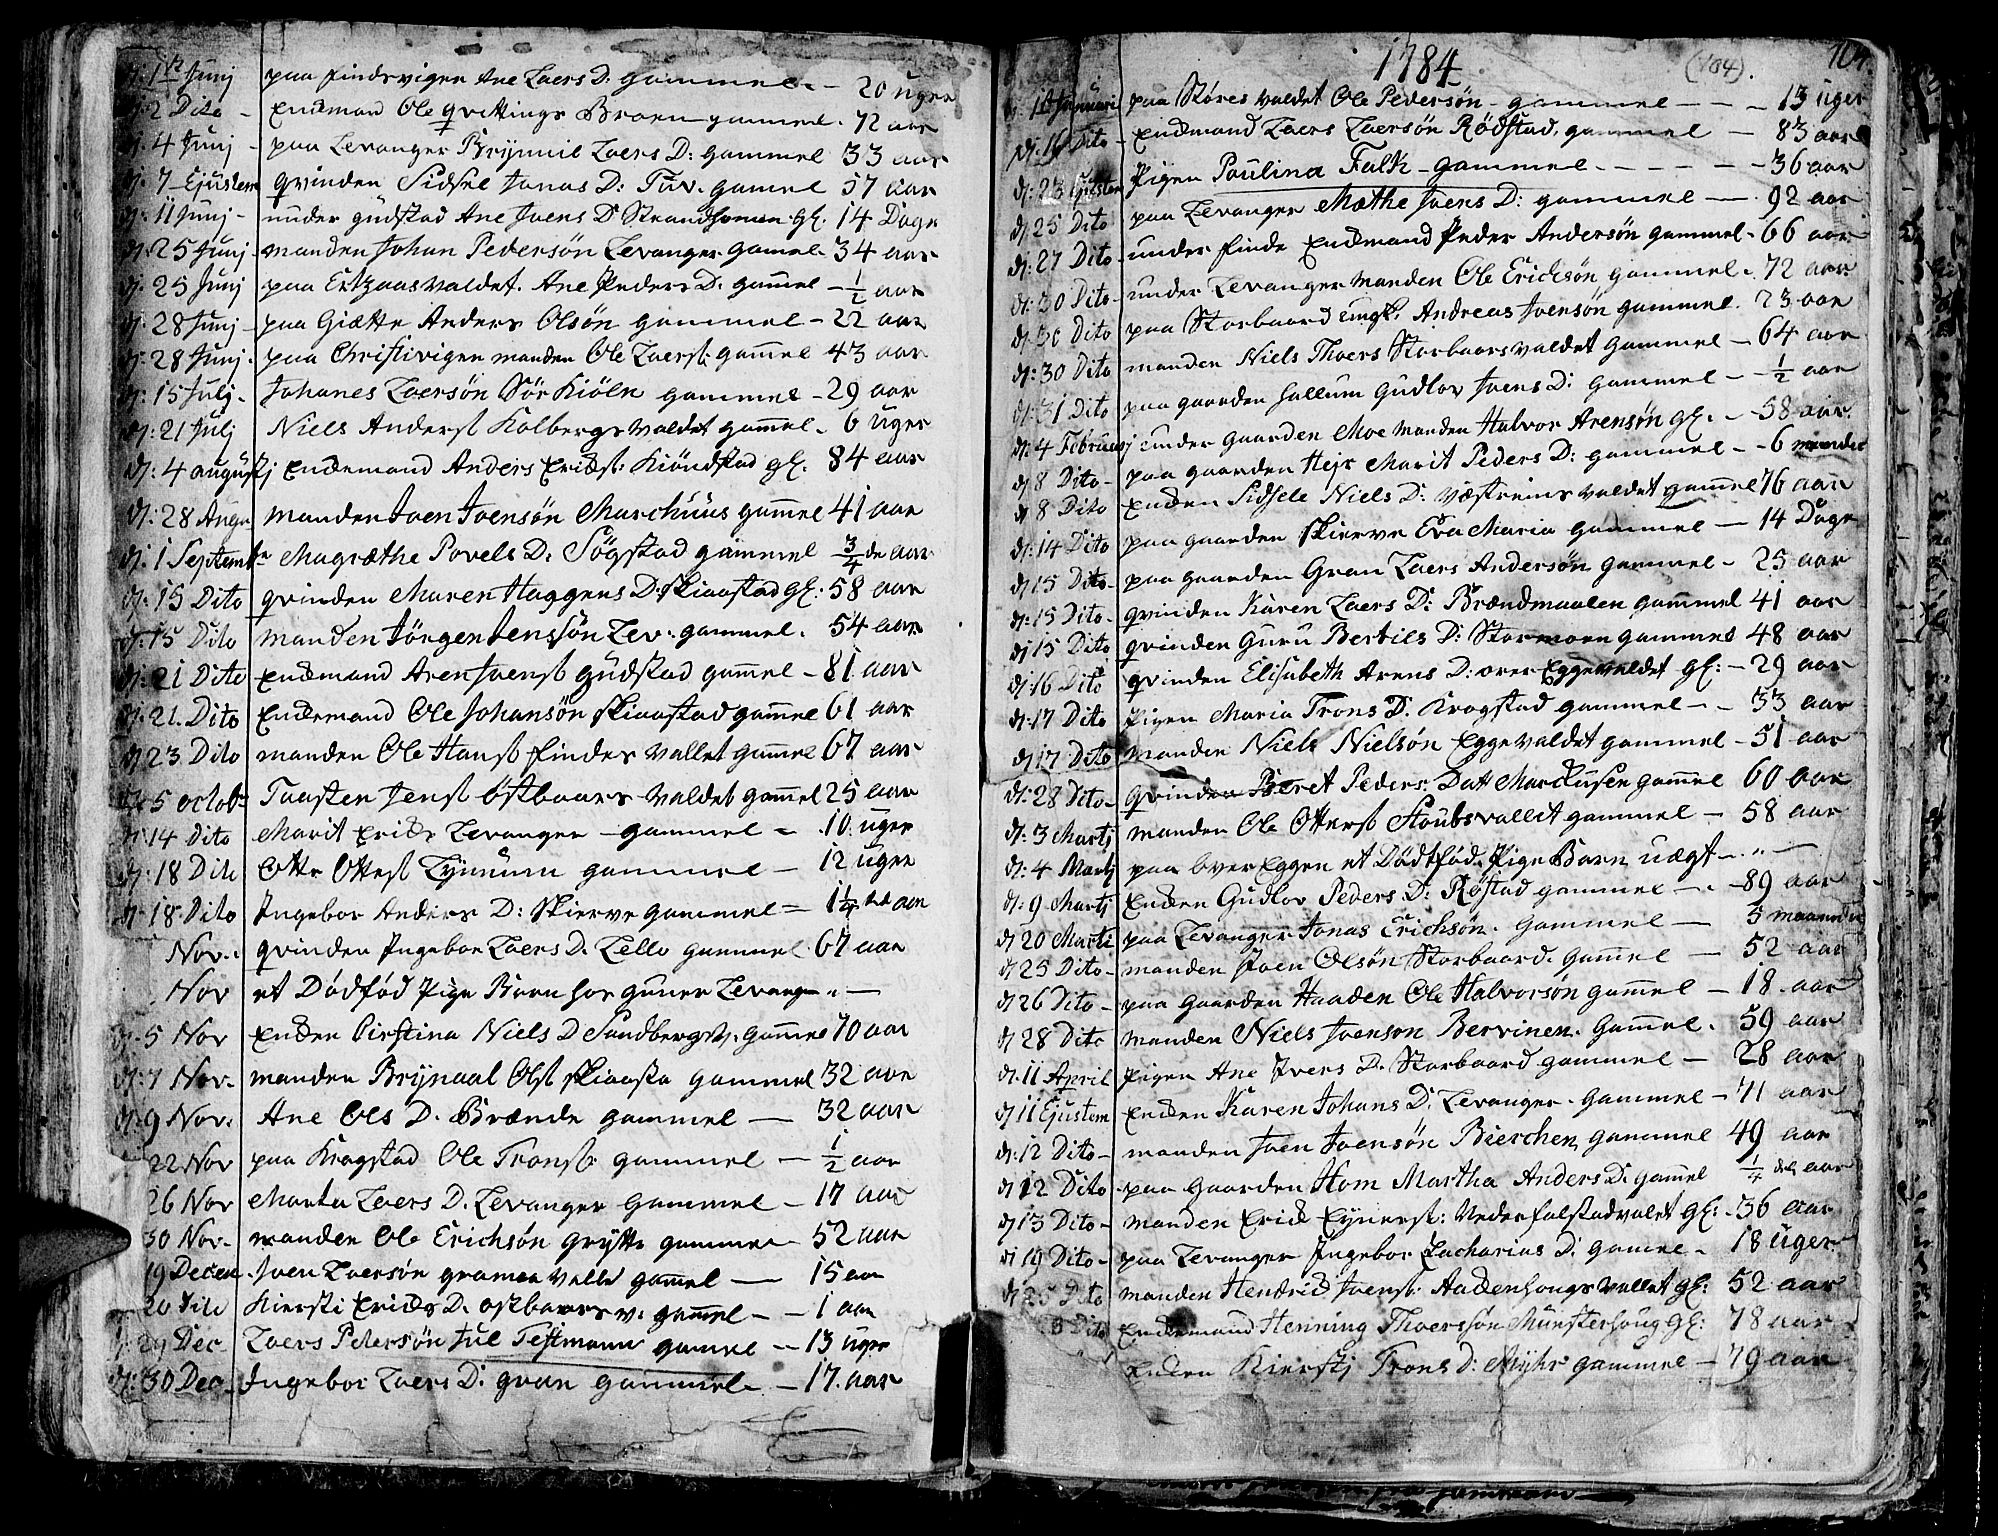 d: 1te Junj paa findsvigen Ane Laers D: gammel - 20 uger
d: 2 Dito - Enckemand Ole qvettings Broen gammel - 72 aar
d: 4 Junj - paa Levanger Brynnil Laers D: gammel 33 aar
d: 7 Ejustem qvinden Sidsel Jonas D: Tuv. gamel 57 aar
d: 11 Junj - under gudstad Ane Joens D Strandhomen gl. 14 Dage
d: 25 Junj - manden Johan Pedersøn Levanger gamel - 34 aar
d: 25 Junj paa Ertzaasvaldet. Ane Peders D. gamel - 1/2 aar
d: 28 Junj - paa Giætte Anders Olsøn gammel - 22 aar
d: 28 Junj. paa Christivigen manden Ole Laers: gamel 43 aar
d: 15 Julj. Johanes Laersøn Sør Kiøln gammel - 29 aar
d: 21 Julj Niels Anders Kolbergsvaldet gamel. 6 uger
d: 4 augustj Enckemand Anders Ericks: Kiøndstad gl. 84 aar
d: 28 Augu manden Joen Joensøn Marchuus gamel 41 aar
d: 1 Septembr Magræthe Povels D. Søgstad gammel 3/4 de aar
d: 15 Dito qvinden Maren Haggens D: Skiaastad gl. 58 aar
d: 15 Dito manden Jørgen Jenssøn Lev. gammel. 54 aar
d: 21 Dito Enckemand Aren Joens gudstad gamel - 81 aar
d: 21. Dito Enckemand Ole Johansøn Skiaastad gamel 61 aar
d: 23 Dito manden Ole Hans findes vallet gamel 67 aar
d: 5 octobr Taasten Jens østbaars valdet gamel 25 aar
d: 14 Dito Marit Ericks Levanger - gammel - 10. uger
d: 18 Dito Otte Ottes Lynum gammel - 12 uger
d: 18. Dito Ingebor Anders D: Skierve gammel - 1 1/4 del aar
Nov. qvinden Ingebor Laers D. Lello gammel. 67 aar
Nov et Dødfød Pige Barn hos Levang - " -
d. 5 Nov Encken Cirstina Niels D Sundbergsv. gamel 70 aar
d. 7 Nov. manden Brynaal Ols Skiaasta gammel 32 aar
d: 9 Nov. Ane Ols D. Brænde gammel - 32 aar
22 Nov paa Kragstad Ole Trons gammel - 1/2 aar
26 Nov Marta Laers D. Levanger gammel - 17 aar
30 Nov. manden Ole Erichsøn grytte gammel - 52 aar
19 Decem. Joen Laersøn valle gamel - 15 aar
20 Dito Kiersti Ericks D. ostbaars v. gamel - 1 aar
29 Dec Laers Pedersøn Jul Testmann gammel - 13 uger
d: 30 Dec. Ingebor Laers D: gran gammel - 17. aar
1784 (104). 104.
d: 10 Januarii paa Støres valdet Ole Pedersøn - gammel - - - 15 uger
d: 16 Dito - Enckemand Laers Laersøn Rødstad. gammel - 83 aar
d: 23 Ejustem Pigen Paulina Falk - gammel - - - - 36 aar
d: 25 Dito paa Levanger Mæthe Joens D: gammel - 92 aar
d: 27 Dito - under finde Enckemand Peder Andersøn gammel - 66 aar
d: 30 Dito - under Levanger manden Ole Erichsøn gammel. 72 aar
d: 30 Dito paa Storbaard ungk. Andreas Joensøn gammel. 23 aar
d: 30 Dito manden Niels Thoers Storbaarsvaldet gammel - 64 aar
d: 31 Dito paa gaarden hallum Gudlov Joens D: gammel - 1/2 aar
d: 4 Februarj under gaarden Moe manden Halvor Arensøn gl. - 58 aar.
d 8 Dito - paa gaarden Hejr Marit Peders D: gammel - 6 mander
d 8 Dito Encken Sidsele Niels D: Væstreins valdet gamel 76 aar
d: 14 Dito paa gaarden Skierve Eva Maria gammel - 14 Dage
d: 15 Dito - paa gaarden Gran Laers Andersøn gammel - 25 aar
d: 15 Dito - qvinden Karen Laers D: Brændmaalen gammel 41 aar
d: 15 Dito qvinden Guru Bertils D: Stormoen gammel 48 aar
d: 16 Dito qvinden Elisabeth Arens D: over Eggevaldet gl: - 29 aar
d: 17 Dito Pigen Maria Trons D. Kragstad gammel - - 33 aar
d: 17 Dito manden Niels Nielsøn Eggevaldet gammel - 51 aar
d: 28 Dito - Qvinden Beret Peders: Datt Marckusen gamel 60 aar
d: 3 Martj manden Ole Otters Stoubsvallit gammel - 58 aar
d: 4 Martj paa over Eggen et Dødfød Pige Barn uægt - " -
d: 9 Martj Encken Gudlov Peders D: Røstad gammel - - 89 aar
d: 20 Marti paa Levanger Jonas Erichsøn. gammel - 5 maaneder
d 25 Dito - manden Joen Olsøn Storbaard. gamel - 52 aar
d 26 Dito - paa gaarden Haaden Ole Halvorsøn gamel - 18 aar
d 28 Dito manden Niels Joenson Bervinen. gamel. 59 aar
d. 11 April Pigen Ane Ivers D. Storbaard gammel - 28 aar
d 11 Ejustem Encken Karen Johans D: Levanger - gammel - 71 aar
d: 12 Dito - manden Joen Joensøn Bierchen gammel 49 aar
d 12 Dito paa gaarden Hom Martha Anders D. gamel 1/4 del aar
d 13 Dito - manden Erick Eyners: Nederfalstadvalet gl: - 36 aar
d 19 Dito - paa Levanger Ingebor Zacharias D: gamel - 18 uger
d 25 Dito manden Hendrick Joens: Aadenhougs vallet gl: 52 aar
Dito Enckemand Henning Thoersøn Munsterhoug gl: 78 aar
Encken Kierstj Trons D: Myhr gammel - 79 aar